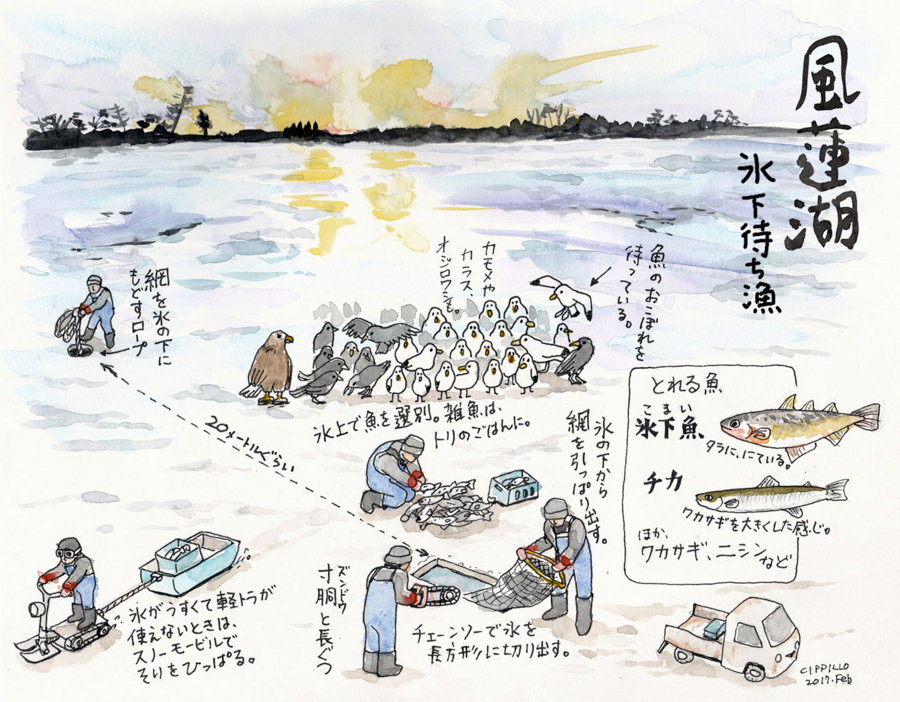 風蓮湖
氷下待ち漁
魚のおこぼれを
待っている。
カモメや
カラス、
オジロワシも。
網を氷の下に
もどすロープ
20メートルぐらい
氷上で魚を選別。雑魚は、
トリのごはんに。
氷の下から
網を引っぱり出す。
とれる魚
こまい
氷下魚、
タラに、にている。
チカ
ワカサギを大きくした感じ。
ほか、
ワカサギ、ニシンなど
氷がうすくて軽トラが
使えないときは、
スノーモービルで
そりをひっぱる。
ズンドウ
寸胴と長ぐつ
チェーンソーで氷を
長方形に切り出す。
CIPPILLO
2017.Feb